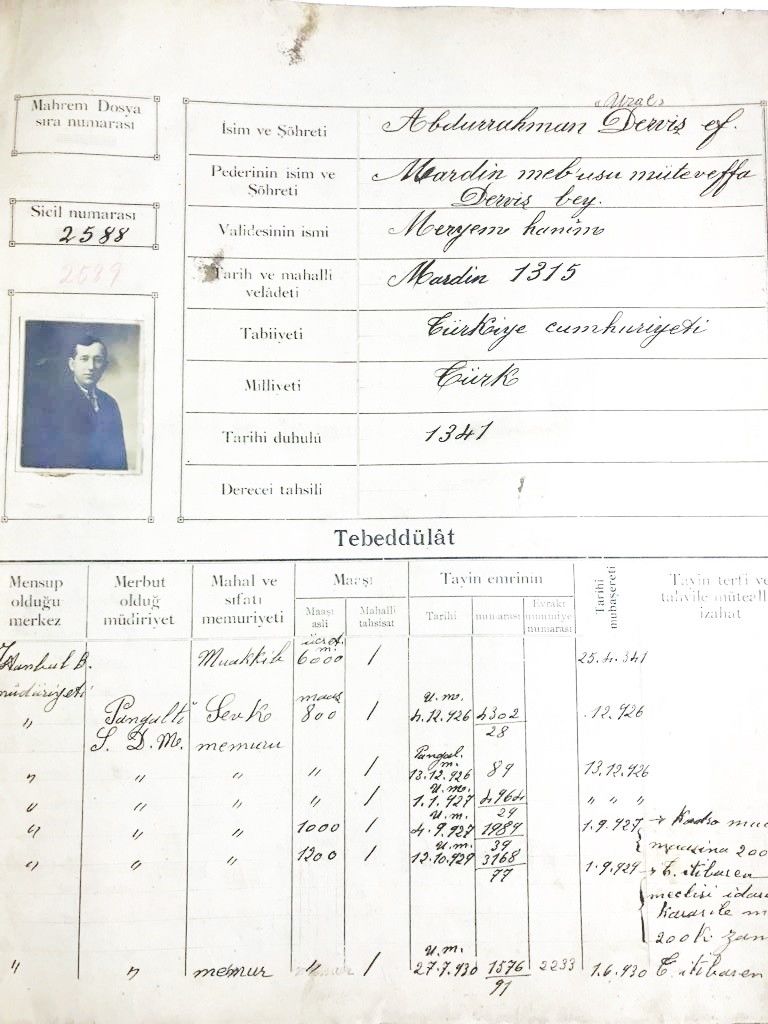 Mahrem Dosya
sıra numarası
Sicil numarası
2588
2589
« Ural »
İsim ve Şöhreti Abdurrahman Derviş ef.
Pederinin isim ve Şöhreti Mardin mebusu müteveffa
Derviş bey.
Validesinin ismi Meryem hanım
Tarih ve mahalli velâdeti Mardin 1315
Tabiiyeti Türkiye cumhuriyeti
Milliyeti Türk
Tarihi duhulü 1341
Derecei tahsili
Tebeddülât
Mensup olduğu merkez
Merbut olduğ müdiriyet
Mahal ve sıfatı memuriyeti
Maaşı
Maaşı asli
Mahalli tahsisat
Tayin emrinin
Tarihi
numarası
Evrakı umumiye numarası
Tarihi mubaşereti
Tayin terfi ve
tahvile müteall
izahat
ücret
m.
İstanbul B. Muakkib 6000 / 25.4.341
müdüriyeti
maaş U.m.
" Pangaltı Sevk 800 / 4.12.926 4302 .12.926
S. D. M. memuru 28
Pangal.
m.
" " " " / 13.12.926 89 13.12.926
U.m.
" " " " / 1.1.927 4964 " " "
29
U.m.
" " " 1000 / 4.9.927 1989 1.9.927 → Kadro maa
39 maaşına 200
U.m.
" " " 1200 / 12.10.929 3168 1.9.929 → T. itibaren
77 meclisi idar
kararile m
200 K. zam
U.m.
" " memur " / 27.7.930 1576 2233 1.6.930 T. itibaren
91